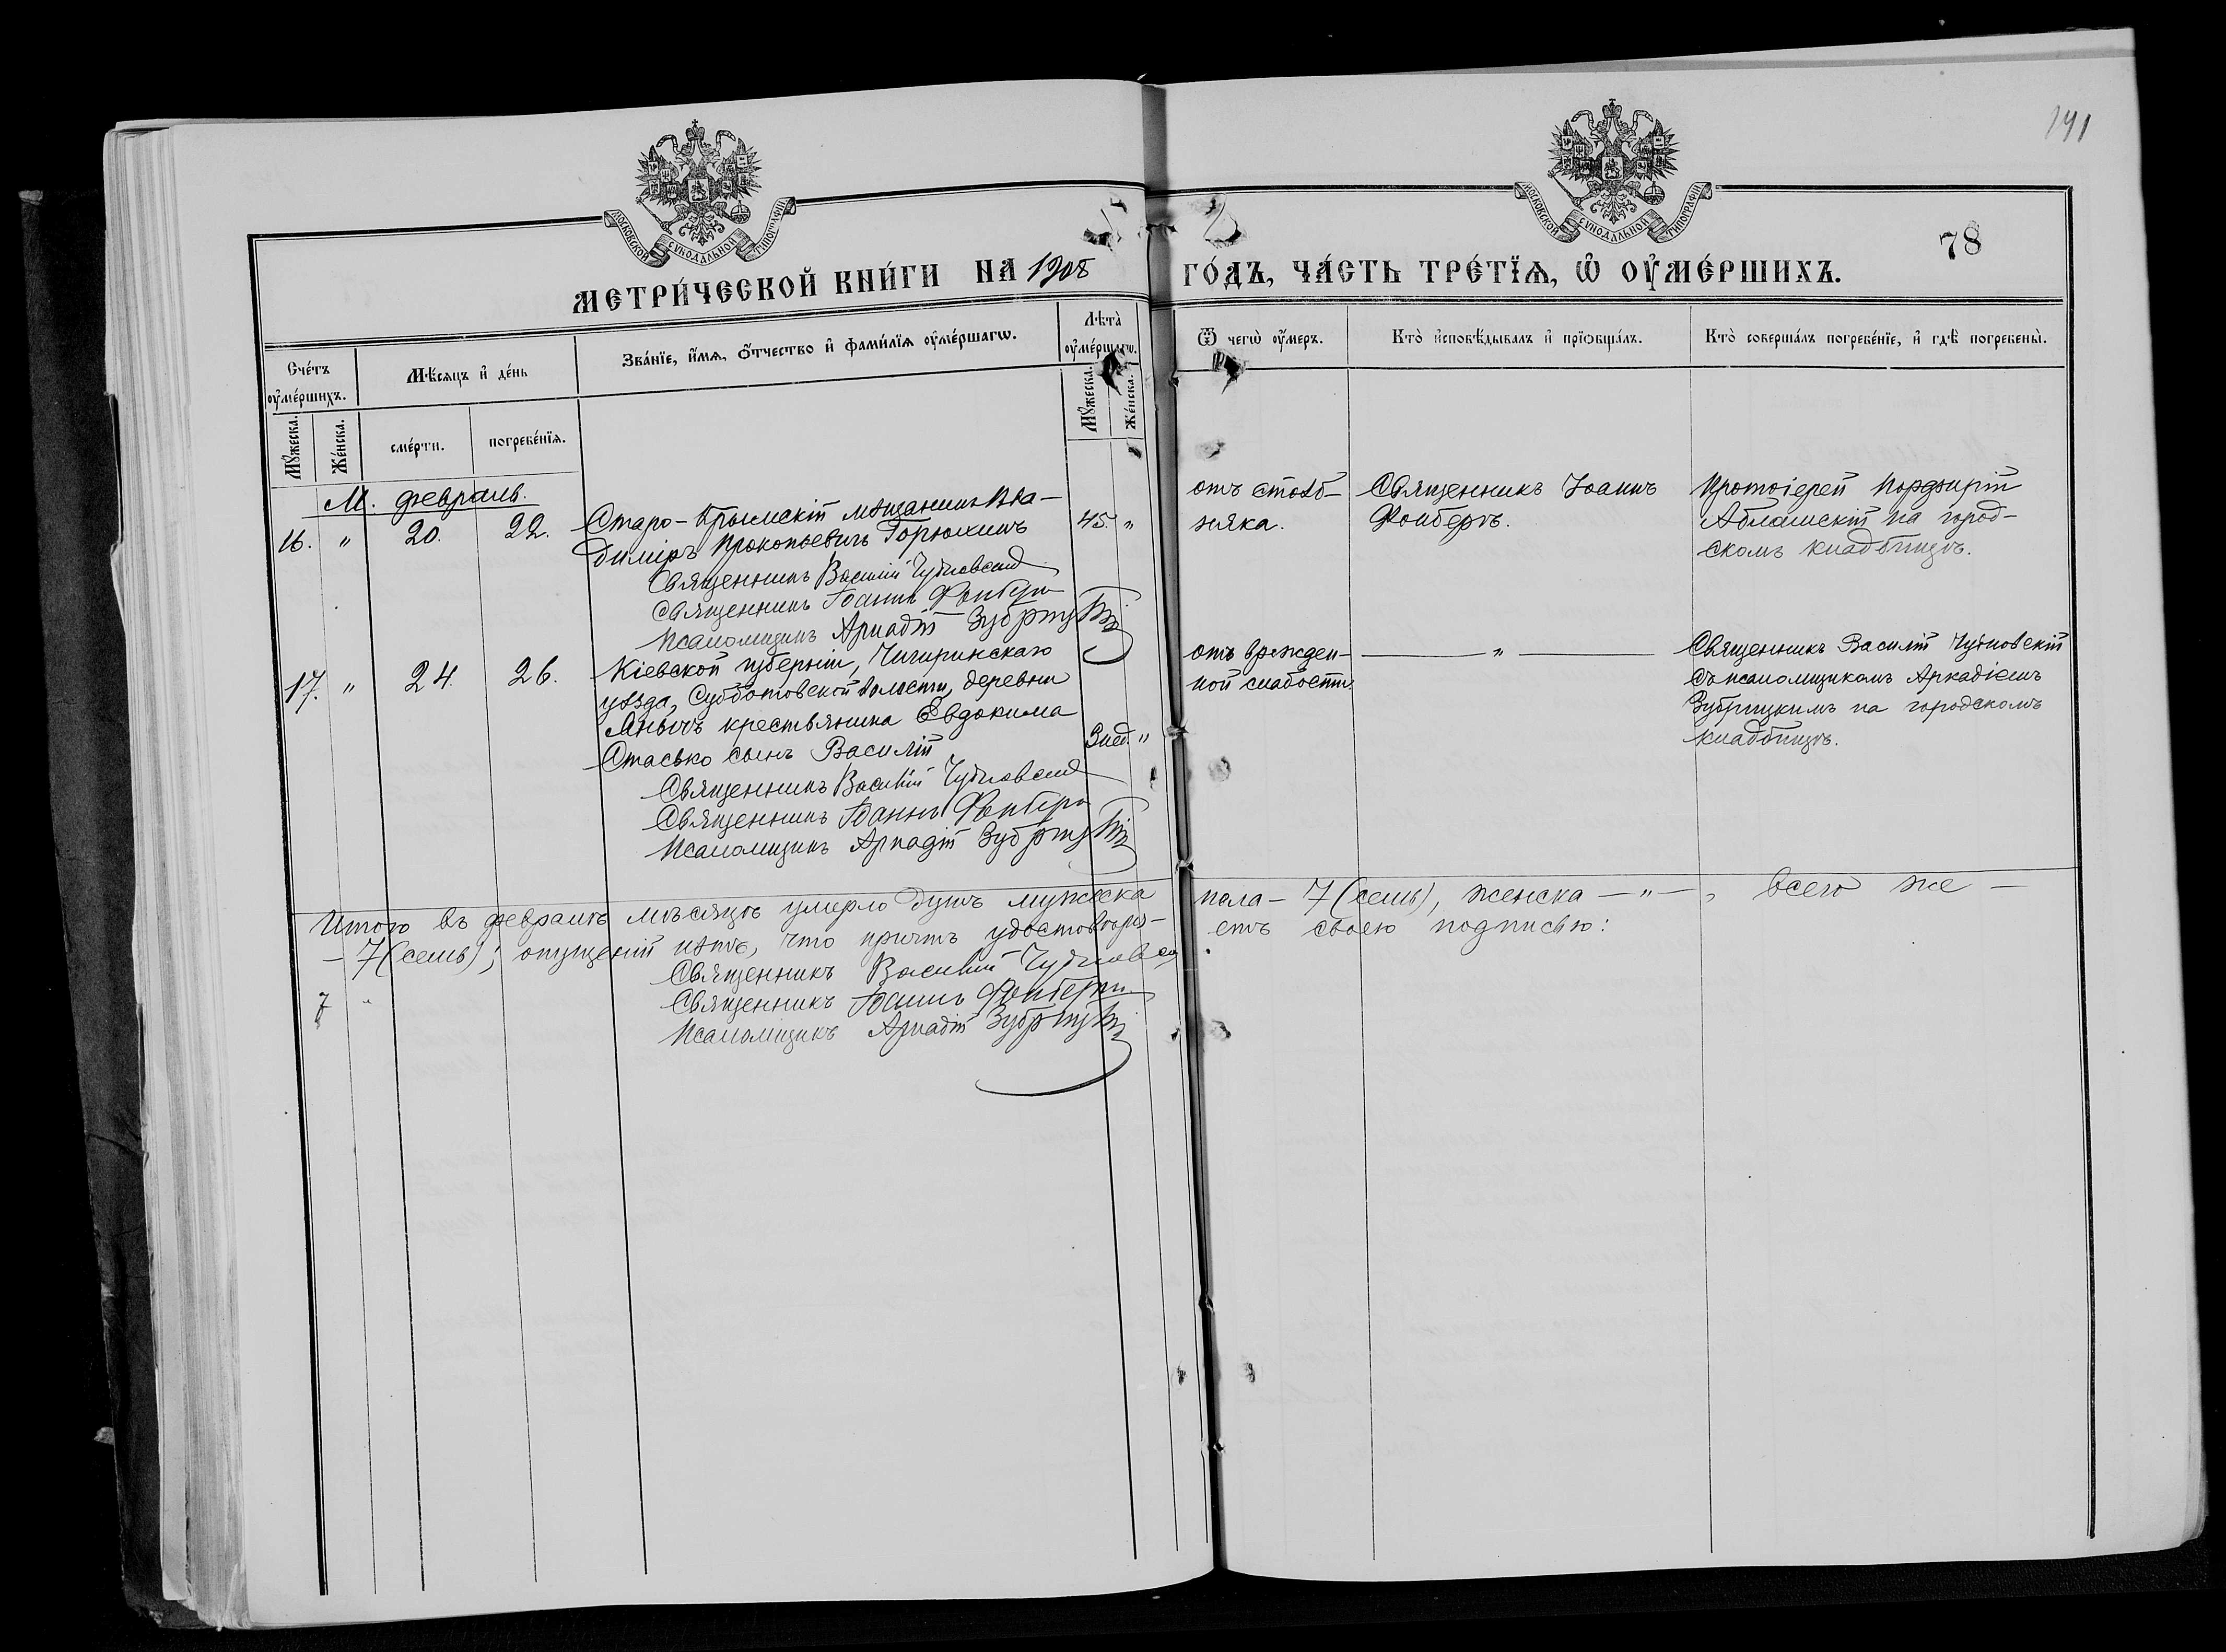 141
МОСКОВСКОЙ СУНОДАЛЬНОЙ ТИПОГРАФІИ
МОСКОВСКОЙ СУНОДАЛЬНОЙ ТИПОГРАФІИ
78
МЕТРИ́ЧЕСКОЙ КНИ́ГИ НА 1908
ГО́ДЪ, ЧА́СТЬ ТРЕ́ТЇѦ, Ѡ҆ ОУ҆МЕ́РШИХЪ.
Сче́тъ оу҆ме́ршихъ.
Мѣ́сяцъ и҆ де́нь
Зва́нїе, и҆́мя, ѻ҆́тчество и҆ фами́лїя оу҆ме́ршагѡ.
Лѣта̀ оу҆ме́ршагѡ.
Мꙋ́жеска.
Же́нска.
сме́рти.
погребе́нїя.
Мꙋ́жеска.
Же́нска.
Ѿ чегѡ̀ оу҆́меръ.
Кто̀ и҆сповѣ́дывалъ и҆ прїѡбща́лъ.
Кто̀ соверша́лъ погребе́нїе, и҆ гдѣ̀ погребены̀.
М. февраль.
16. " 20. 22.
Старо-Крымскій мѣщанинъ Вла-
диміръ Прокопьевичъ Горюхинъ
45. "
Священникъ Василій Чудновскій
Священникъ Іоаннъ Фонберъ
Псаломщикъ Аркадій Зубрицкій
отъ столб-
няка.
Священникъ Іоаннъ
Фонберъ.
Протоіерей Порфирій
на город-
скомъ кладбищѣ.
17. " 24. 26.
Кіевской губерніи, Чигиринскаго
уѣзда, Субботовской волости, деревни
крестьянина Евдокима
Стасько сынъ Василій
3 нед. "
Священникъ Василій Чудновскій
Священникъ Іоаннъ Фонберъ
Псаломщикъ Аркадій Зубрицкій
отъ врожден-
ной слабости.
— " —
Священникъ Василій Чудновскій
съ псаломщикомъ Аркадіемъ
Зубрицкимъ на городскомъ
кладбищѣ.
Итого въ февралѣ мѣсяцѣ умерло душъ мужеска пола - 7 (семь), женска — " —, всего же —
- 7 (семь); опущеній нѣтъ, что причтъ удостовѣря- етъ своею подписью:
Священникъ Василій Чудновскій
7 "
Священникъ Іоаннъ Фонберъ
Псаломщикъ Аркадій Зубрицкій